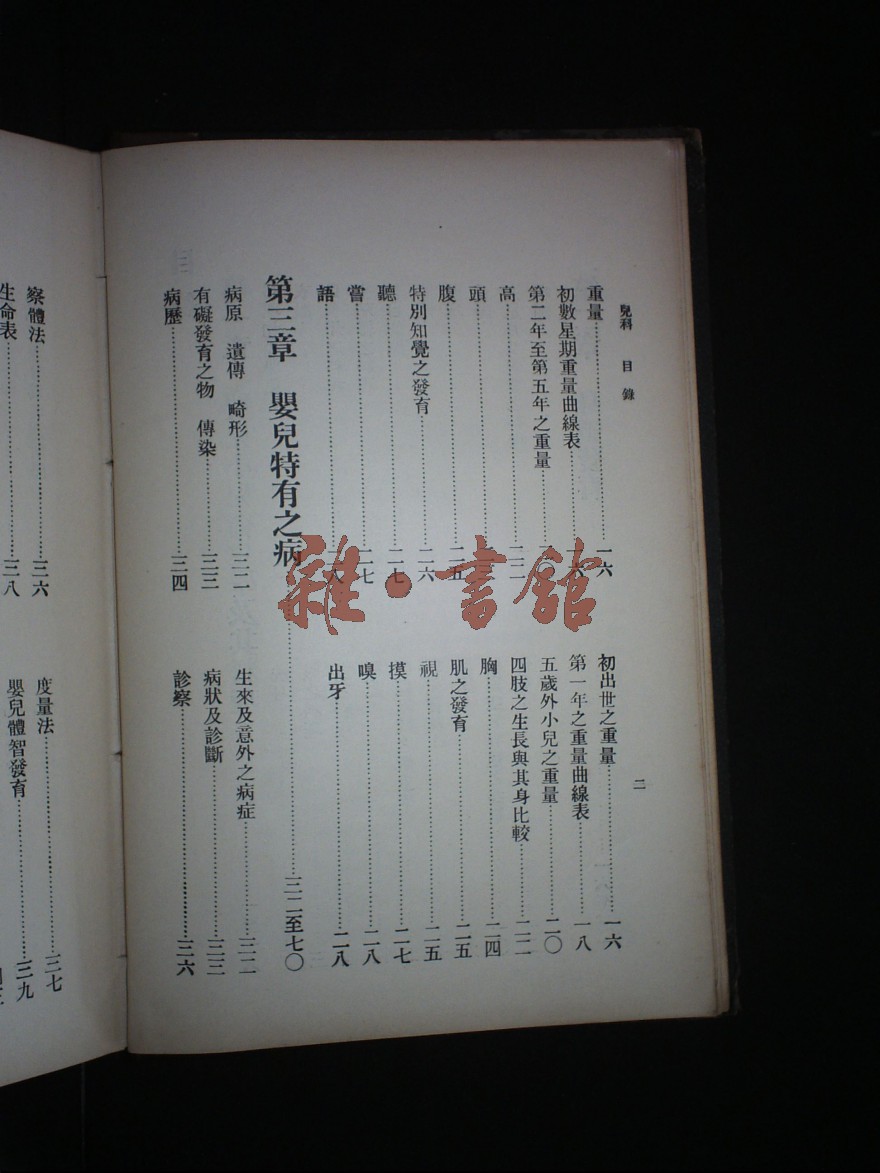 兒科 目錄 二
重量……一六 初出世之重量……一六
初數星期重量曲線表……六 第一年之重量曲線表……一八
第二年至第五年之重量……〇 五歲外小兒之重量……二〇
高……二二 四肢之生長與其身比較……二二
頭…… 胸……二四
腹……二五 肌之發育……二五
特別知覺之發育……二六 視……二五
聽……二七 摸……二七
嘗……二七 嗅……二八
語……二八 出牙……二八
第三章 嬰兒特有之病……三二至七〇
病原 遺傳 畸形……三二 生來及意外之病症……三二
有礙發育之物 傳染……三三 病狀及診斷……三三
病歷……三四 診察……三六
察體法……三六 度量法……三七
生命表……三八 嬰兒體智發育……三九
雜·書館